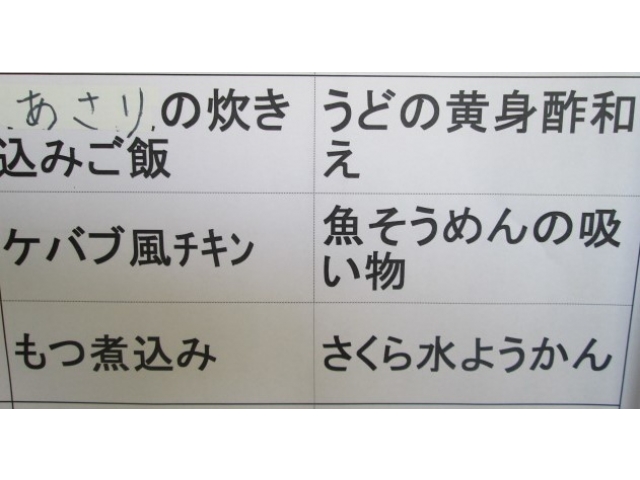 あさりの炊き
込みご飯
うどの黄身酢和
え
ケバブ風チキン
魚そうめんの吸
い物
もつ煮込み
さくら水ようかん